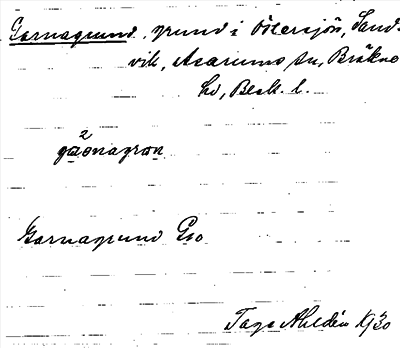 Garnagrund, grund i Östersjön, Sand-
vik, Asarums sn, Bräkne
hd, Blek. l.
2
Garnagrund Gso
Tage Ahldén Kj30